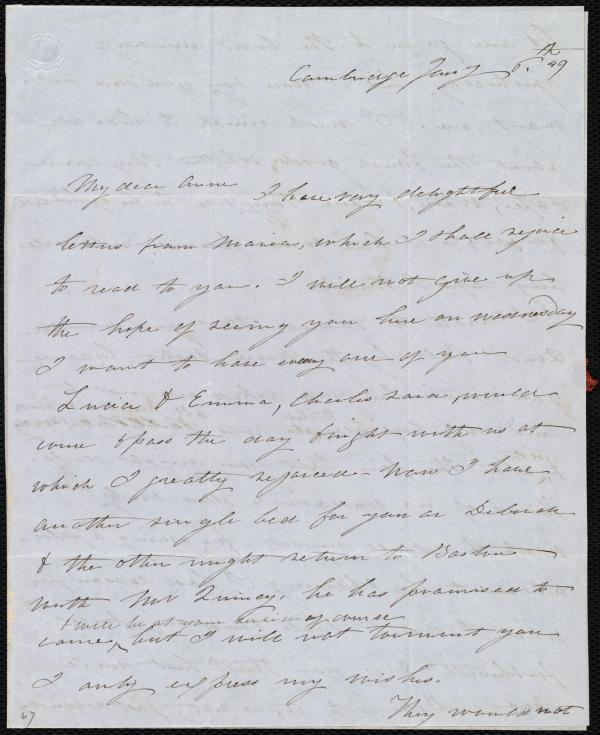 Cambridge Jany 6.th 49
My dear Anne I have very delightful
letters from Maria, which I shall rejoice
to read to you. I will not give up
the hope of seeing you here on Wednesday
I want to have every one of you
Lucia & Emma, Charles said, would
come & pass the day & night with us at
which I greatly rejoiced - Now I have
another single bed for you or Deborah
& the other might return to Boston
with Mr Quincy. he has promised to
& will be at your service of course
come, but I will not torment you
I only express my wishes.
They would not